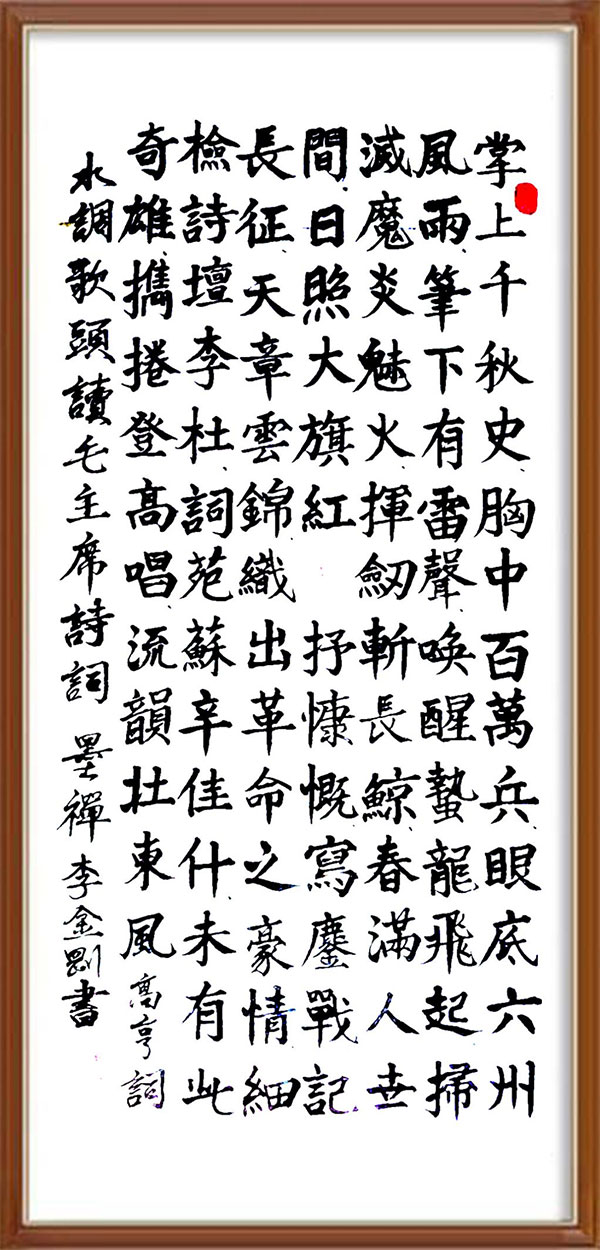 掌上千秋史胸中百萬兵眼底六州
風雨筆下有雷聲喚醒蟄龍飛起掃
滅魔炎魅火揮劒斬長鯨春滿人世
間日照大旗紅 抒慷慨寫鏖戰記
長征天章雲錦織出革命之豪情細
檢詩壇李杜詞苑蘇辛佳什未有此
奇雄攜捲登高唱流韻壯東風 高亨詞
水調歌頭讀毛主席詩詞 墨禪李金剛書